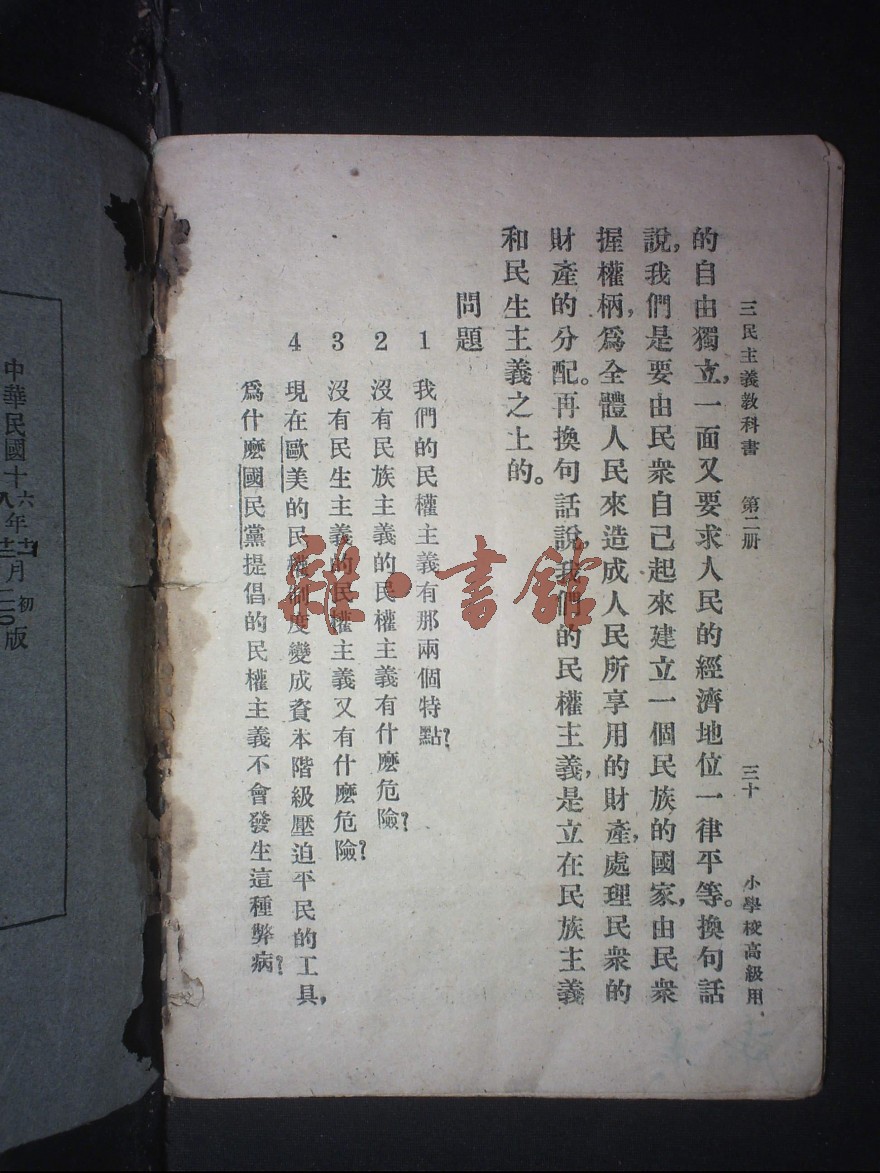 三民主義教科書 第二册 三十 小學校高級用
的自由獨立,一面又要求人民的經濟地位一律平等。換句話
說,我們是要由民衆自己起來建立一個民族的國家,由民衆
握權柄,爲全體人民來造成人民所享用的財產,處理民衆的
財產的分配。再換句話說,我們的民權主義,是立在民族主義
和民生主義之上的。
問題
1 我們的民權主義有那兩個特點?
2 沒有民族主義的民權主義有什麽危險?
3 沒有民生主義的民權主義又有什麽危險?
4 現在歐美的民權制度變成資本階級壓迫平民的工具,
爲什麽國民黨提倡的民權主義不會發生這種弊病?
中華民國十六八年十一十二月初二〇版
雜·書館